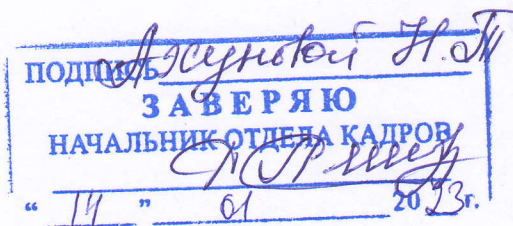 ПОДПИСЬ Ахуновой Н.Т
ЗАВЕРЯЮ
НАЧАЛЬНИК ОТДЕЛА КАДРОВ
“ 14 ” 01 2023г.